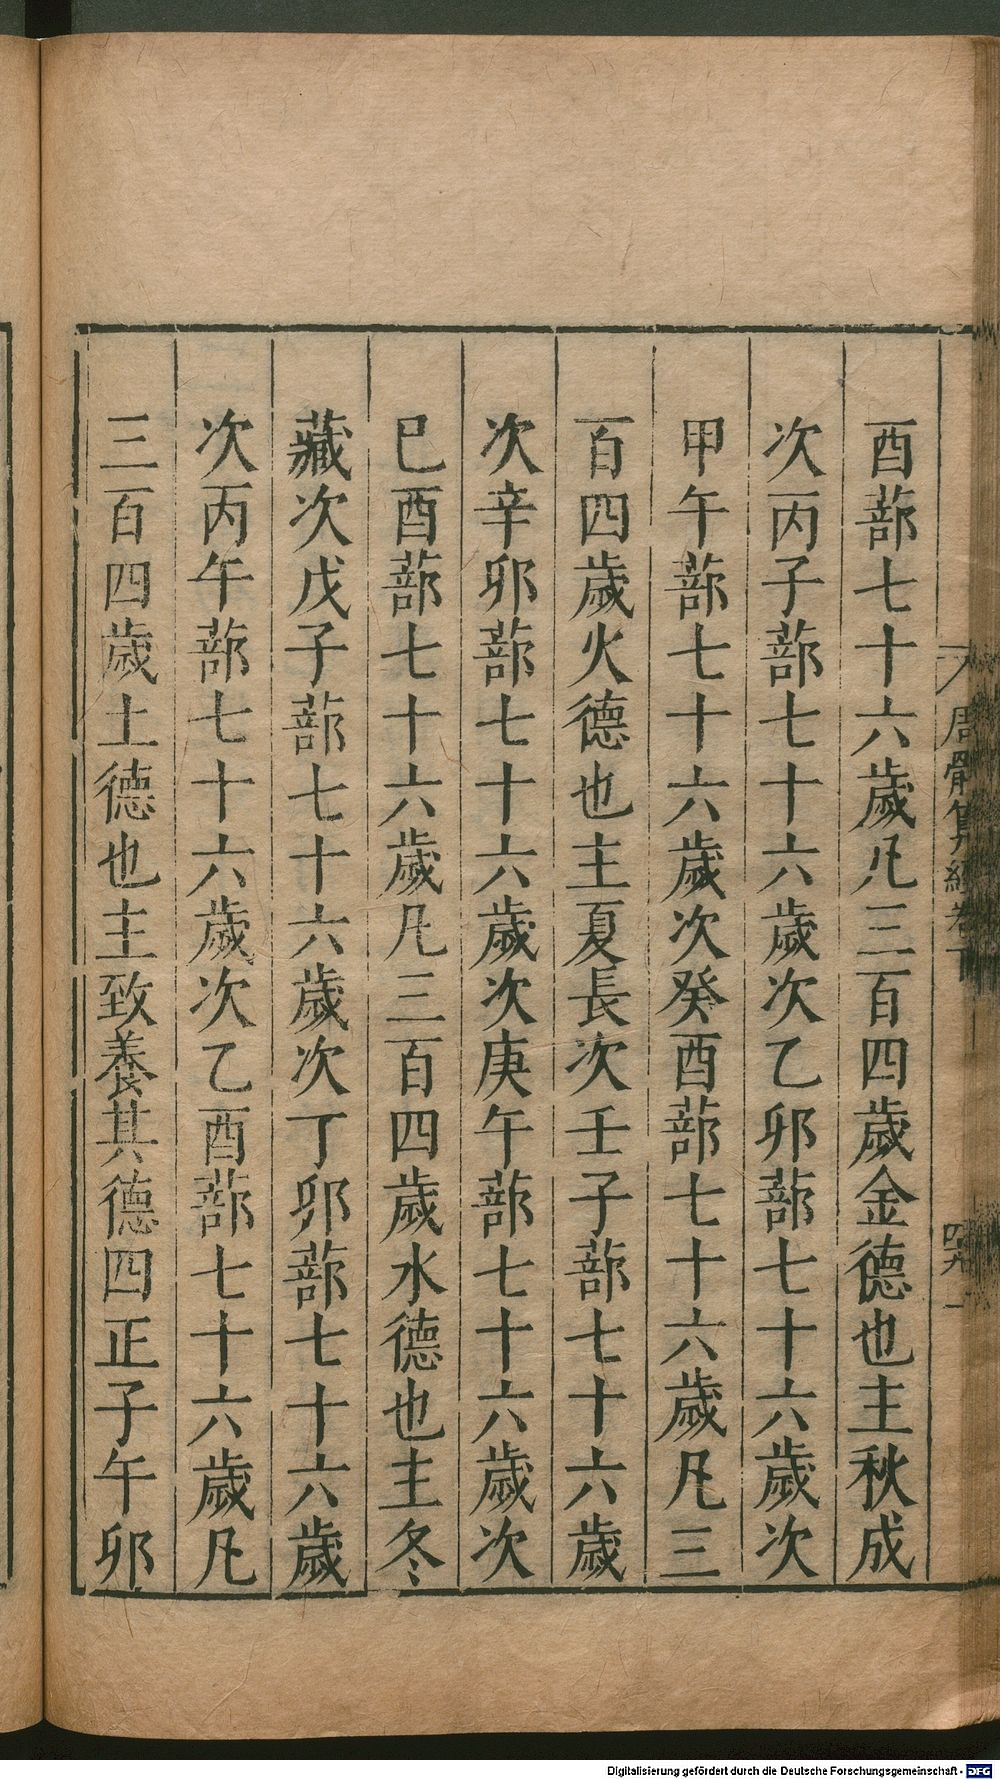 周髀算經卷下
酉蔀七十六歲凡三百四歲金德也主秋成
次丙子蔀七十六歲次乙卯蔀七十六歲次
甲午蔀七十六歲次癸酉蔀七十六歲凡三
百四歲火德也主夏長次壬子蔀七十六歲
次辛卯蔀七十六歲次庚午蔀七十六歲次
巳酉蔀七十六歲凡三百四歲水德也主冬
藏次戊子蔀七十六歲次丁卯蔀七十六歲
次丙午蔀七十六歲次乙酉蔀七十六歲凡
三百四歲土德也主致養其德四正子午卯
Digitalisierung gefördert durch die Deutsche Forschungsgemeinschaft - DFG